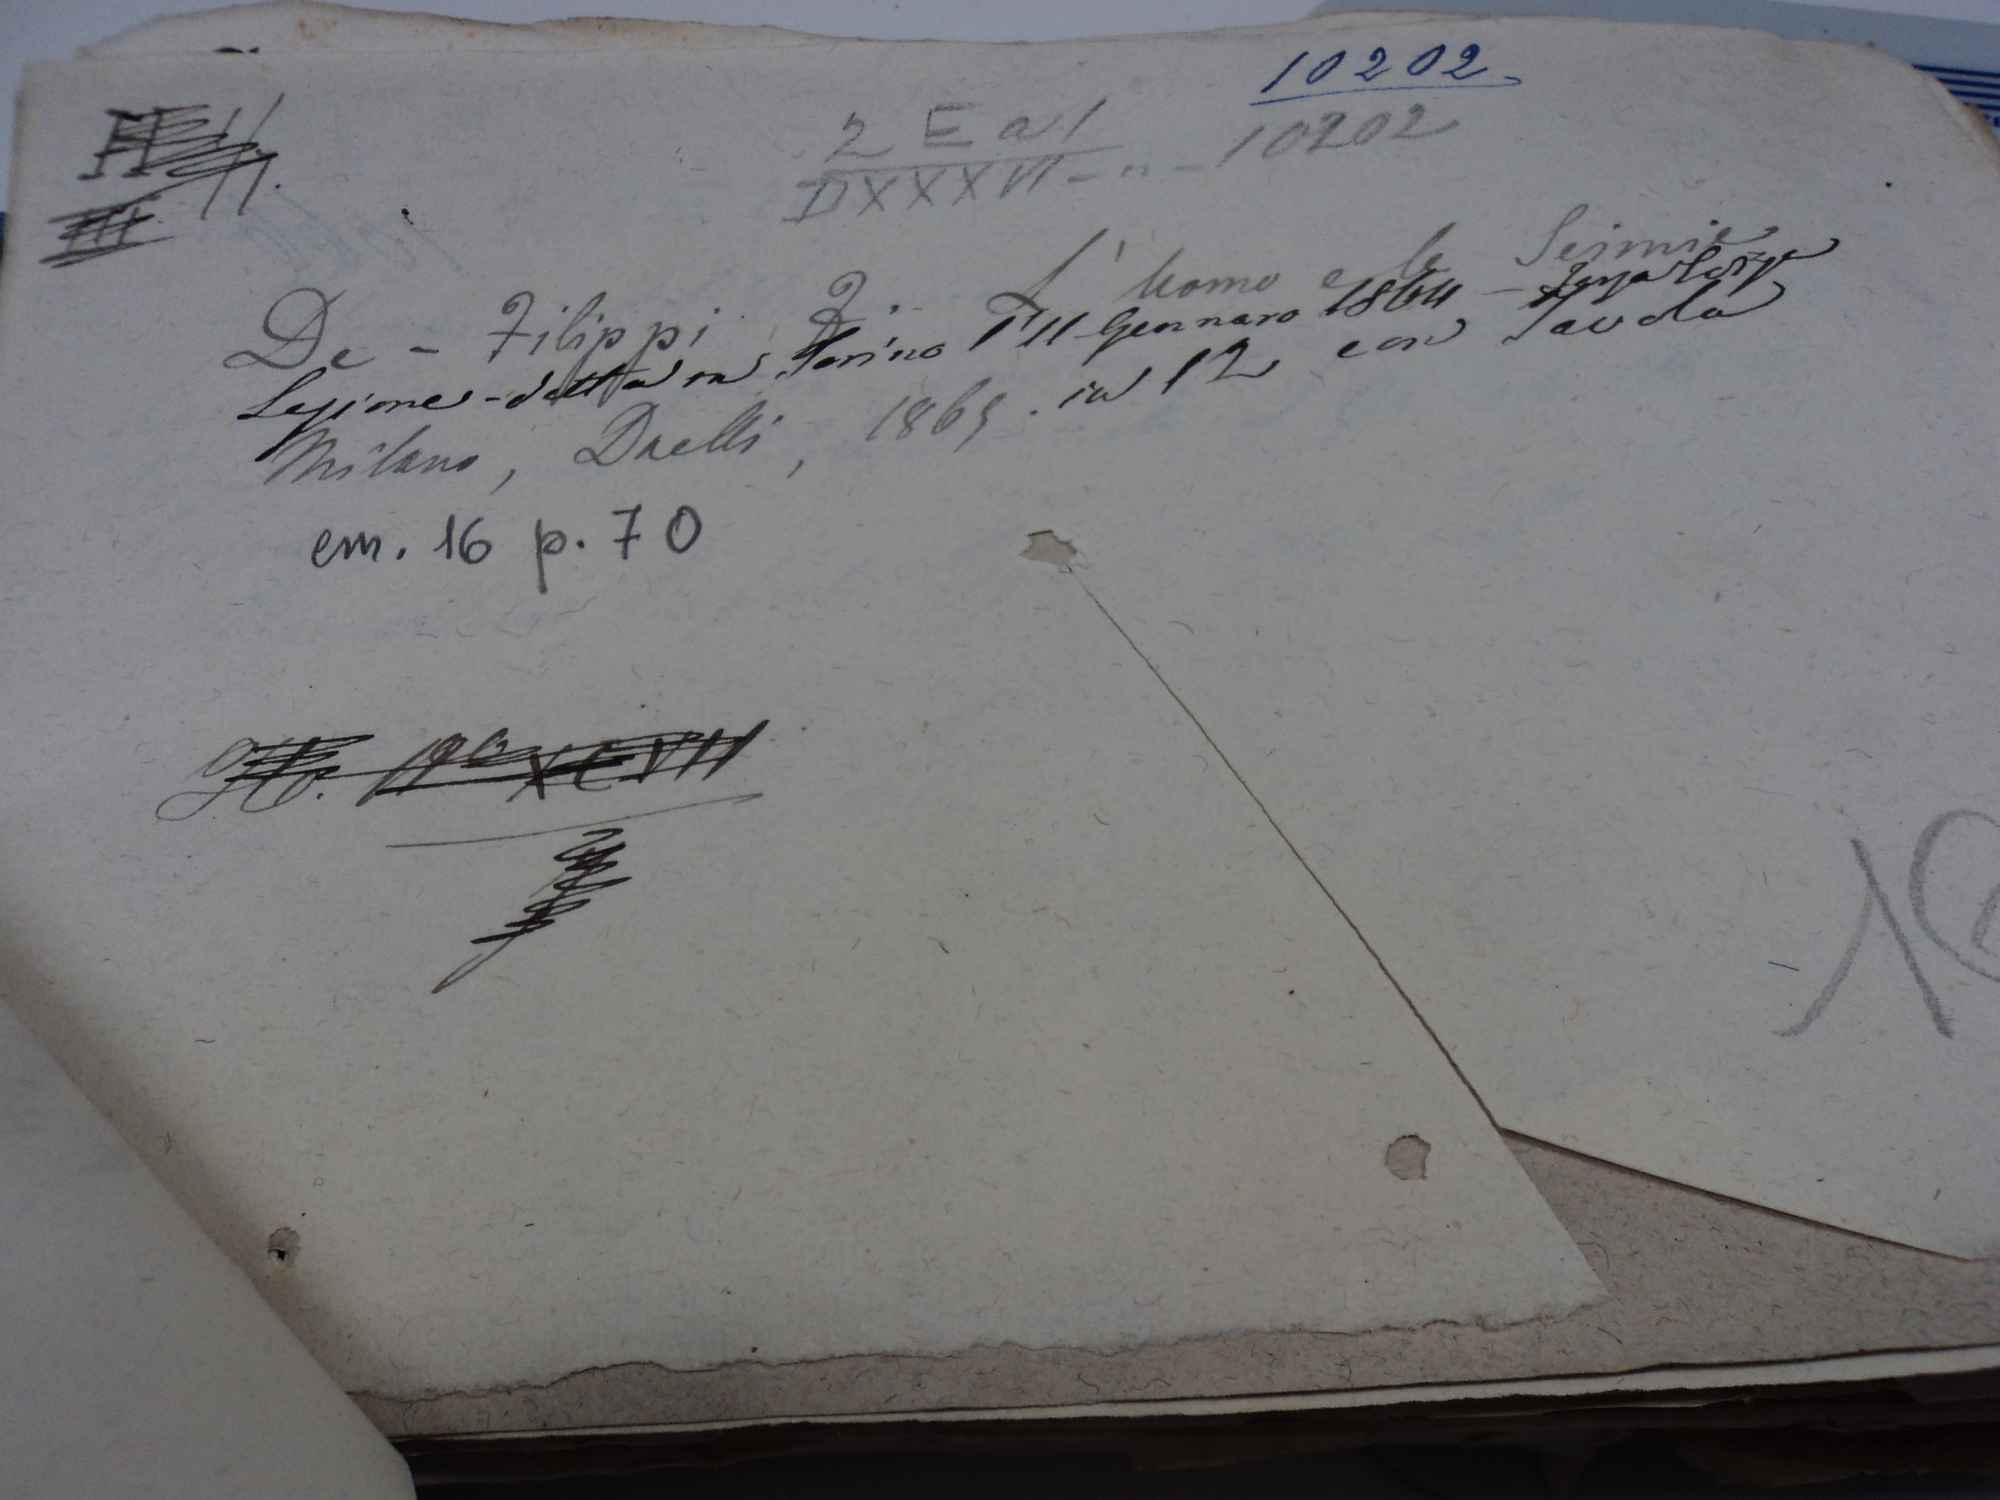 10202
2 E a 1
DXXXVI - " - 10202
De - Filippi F. L'homo e le Scimie
Lezione - detta in Torino l'11 Gennaro 1864 - Terza
Milano, Daelli, 1865. in 12 con Tavola
cm. 16 p. 70
XCVII